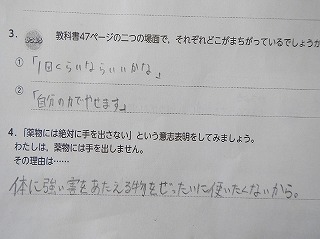 3. 教科書47ページの二つの場面で、それぞれどこがまちがっているでしょうか
① 「1回くらいならいいかな」
② 「自分の力でやせます」
4.「薬物には絶対に手を出さない」という意志表明をしてみましょう。
わたしは、薬物には手を出しません。
その理由は……
体に強い害をあたえる物をぜったいに使いたくないから。